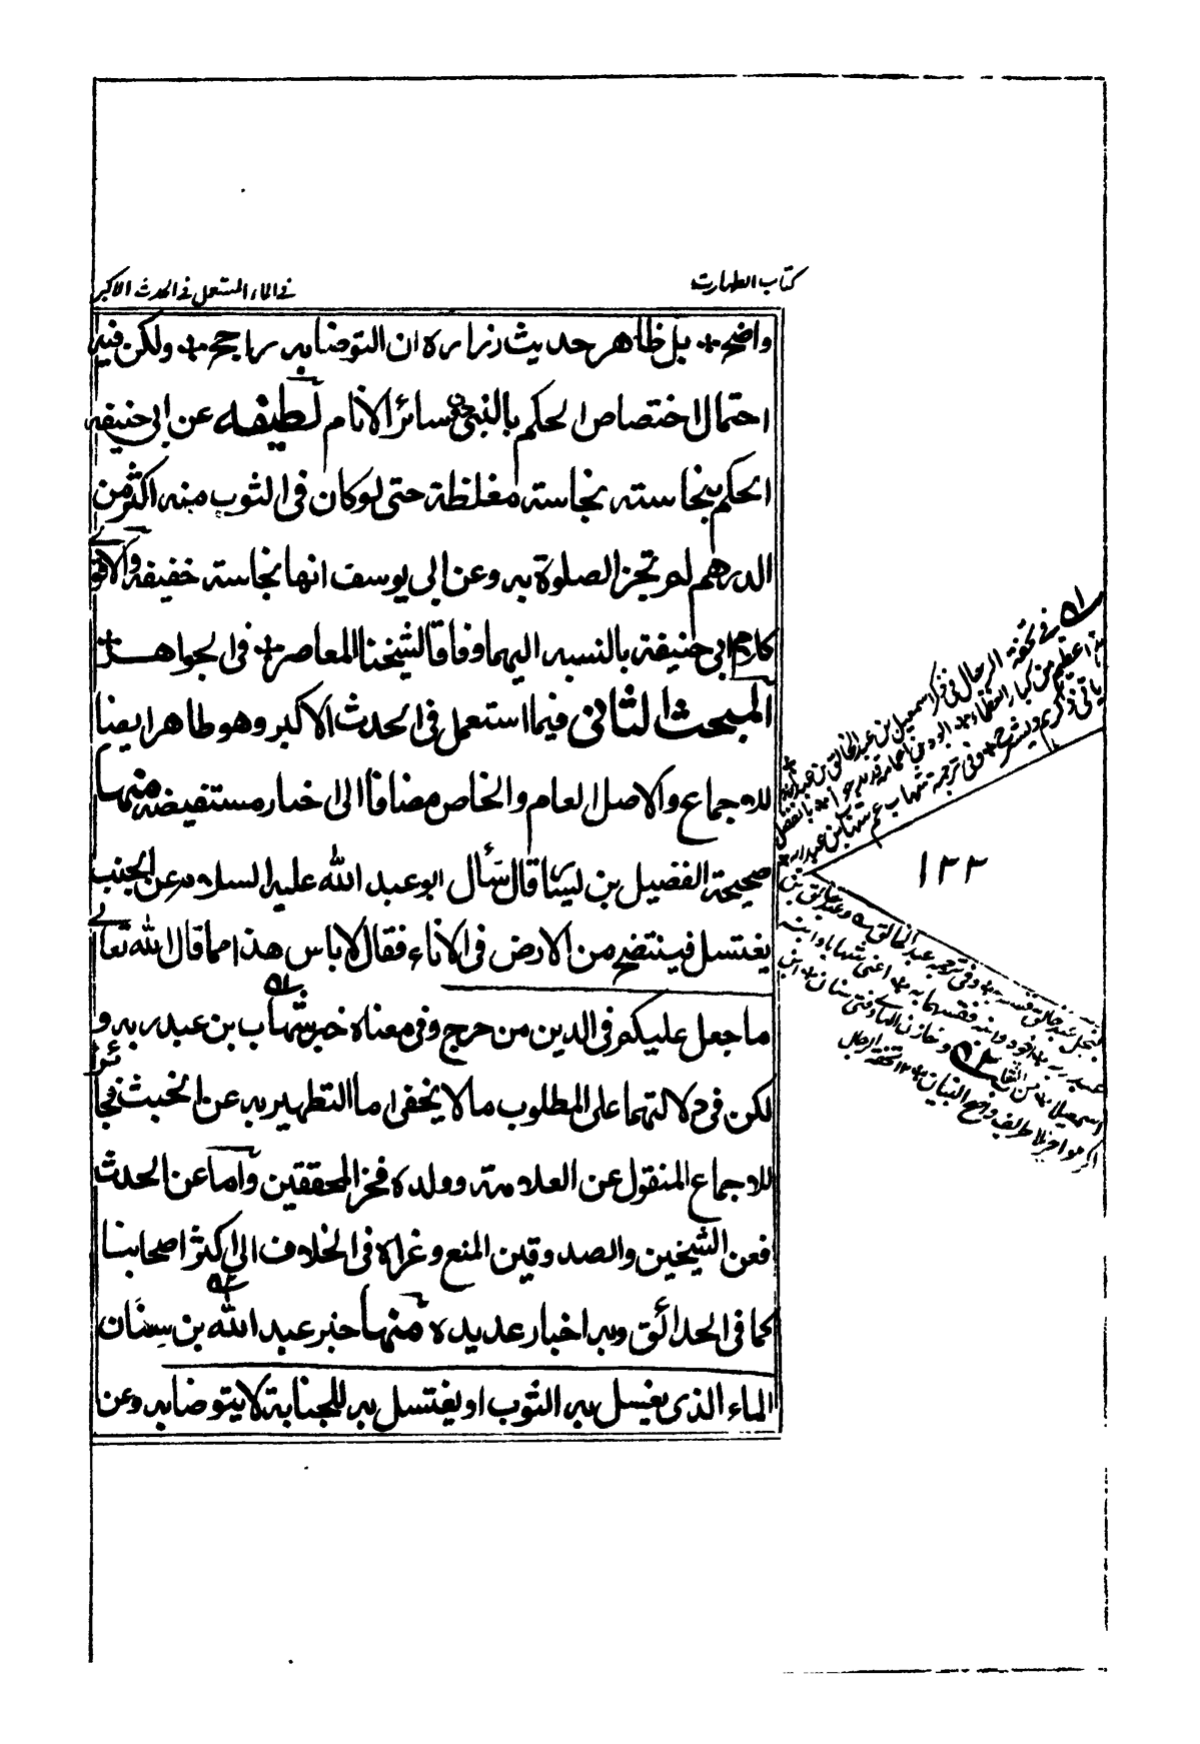 كتاب الطهارت
في الماء المستعمل في الحدث الاكبر
واضح * بل ظاهر حديث زراره ان التوضا به راجح * ولكن فيه
احتمال اختصاص الحكم بالنبي دون سائر الانام لطيفه عن ابي حنيفه
الحكم بنجاسته نجاسة مغلظة حتى لو كان في الثوب منه اكثر من
الدرهم لم تجز الصلوة به وعن ابي يوسف انها نجاسته خفيفه والاقوى
كلام ابي حنيفة بالنسبه اليهما وفاقا لشيخنا المعاصر * في الجواهر
المبحث الثاني فيما استعمل في الحدث الاكبر وهو طاهر ايضا
للاجماع والاصل العام والخاص مضافا الى اخبار مستفيضه منها
صحيحة الفضيل بن يسار قال سأل ابو عبد الله عليه السلام عن الجنب
يغتسل فينتضح من الارض في الاناء فقال لا باس هذا مما قال الله تعالى
ما جعل عليكم في الدين من حرج وفي معناه خبر شهاب بن عبد ربه و
لكن في دلالتهما على المطلوب ما لا يخفى اما التطهير به عن الخبث فجائز
للاجماع المنقول عن العلامة وولده فخر المحققين واما عن الحدث
فعن الشيخين والصدوقين المنع وعزاه في الخلاف الى اكثر اصحابنا
كما في الحدائق وبه اخبار عديده منها خبر عبد الله بن سنان
الماء الذي يغسل به الثوب او يغتسل به للجنابة لا يتوضا به وعن
في تحفة الرجال في ذكر اسمعيل بن عبد الخالق بن عبد ربه
وفي ترجمة شهاب
١٢٢
وفي ترجمة عبد الخالق